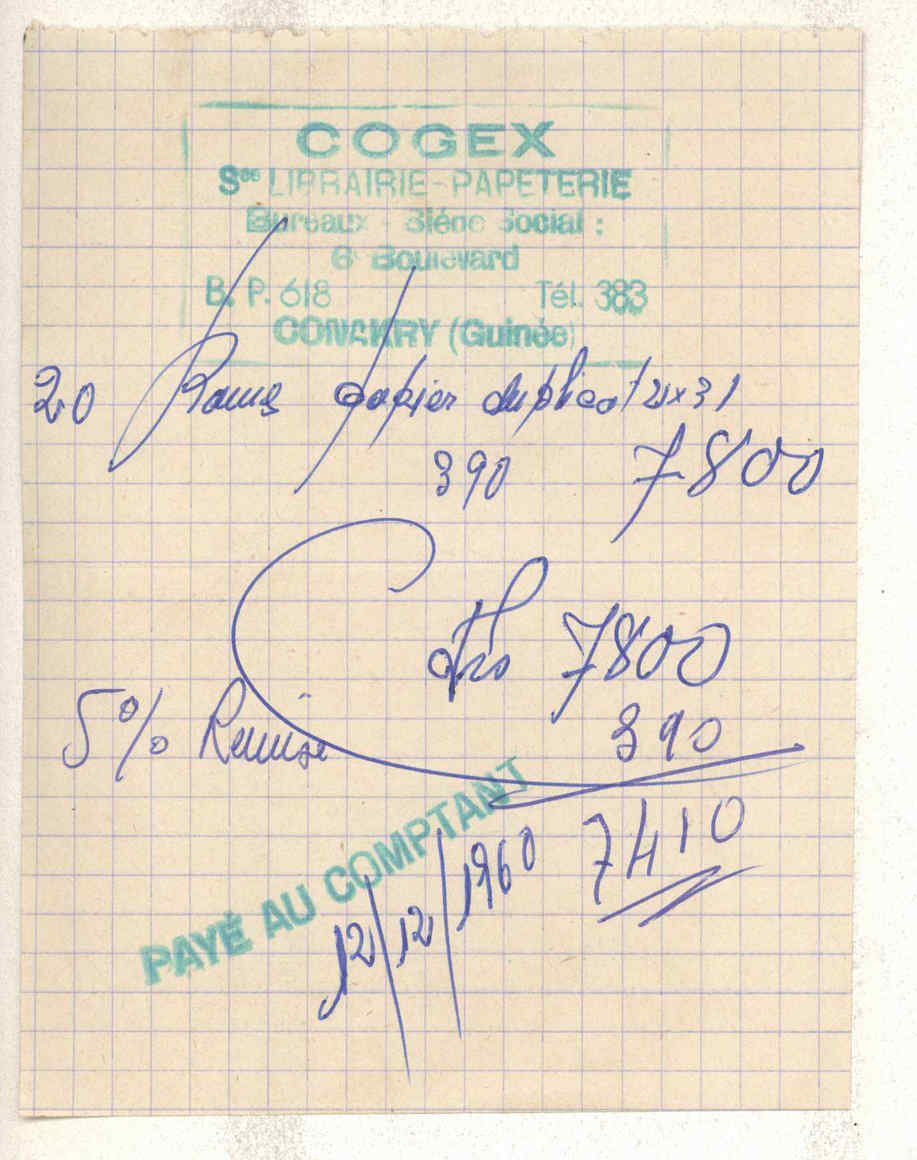 COGEX
Sce LIBRAIRIE-PAPETERIE
Bureaux - Siége Social :
6 Boulevard
B. P. 618 Tél. 383
CONAKRY (Guinée)
20 Rames papier duplicat 21x31
390 7800
7800
5% Remise 390
7410
PAYÉ AU COMPTANT
12/12/1960